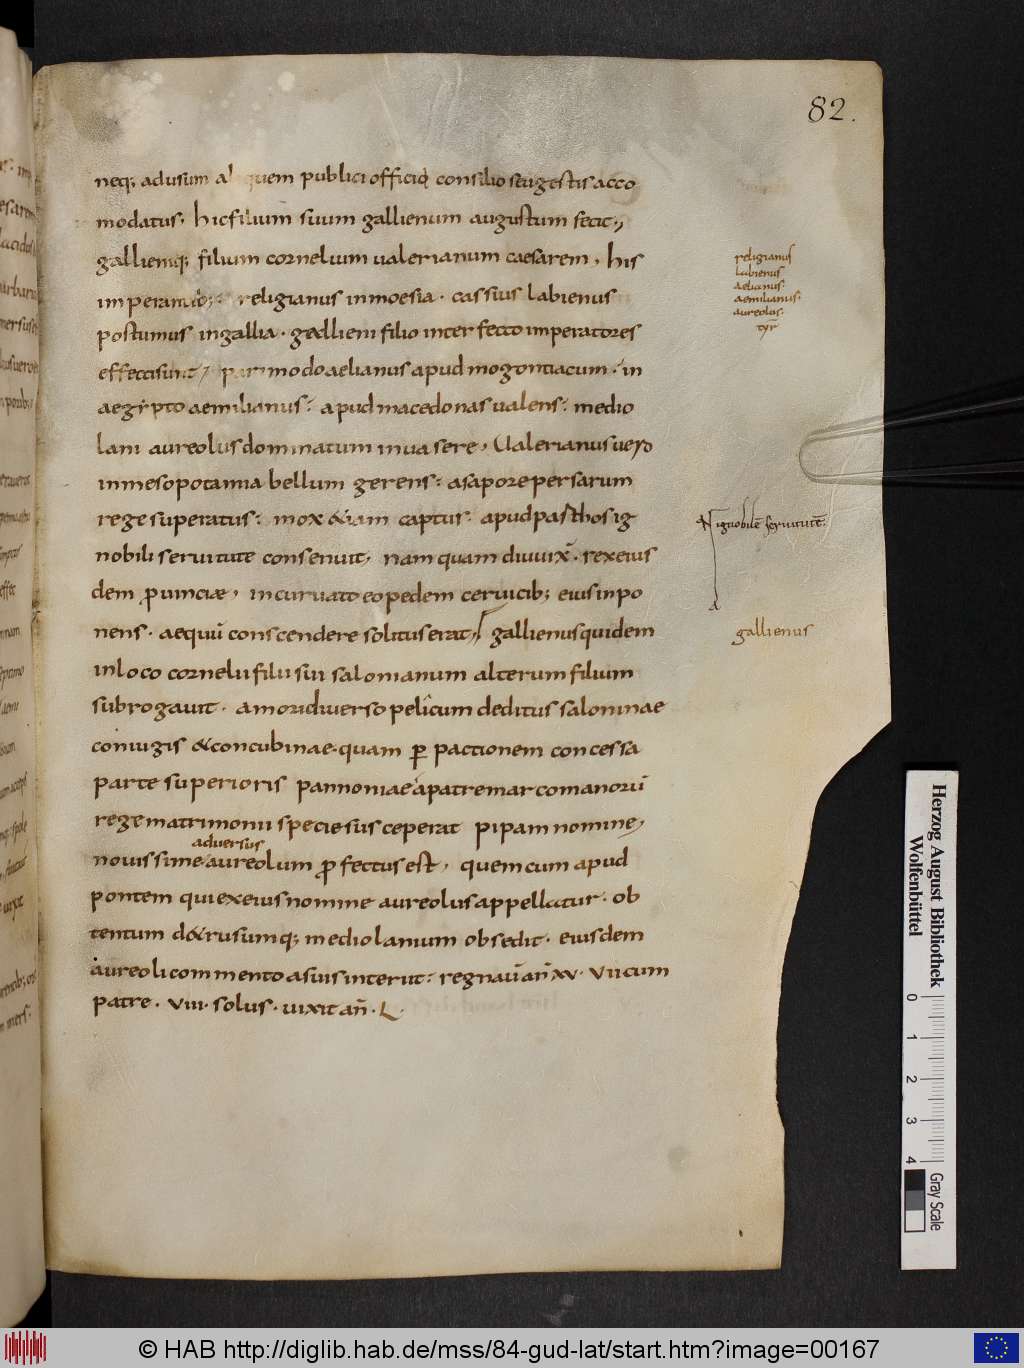 82.
neq; adusum aliquem publici officio consilio seu gestis acco
modatus, hic filium suum gallienum augustum fecit.,
galliemq; filium cornelium ualerianum caesarem, his
imperantib; religianus inmoesia. cassius labienus
postumus ingallia. gallieni filio interfecto imperatores
effecti sunt, pari modo aelianus apud mogontiacum. in
aegypto aemilianus: apud macedonas ualens: medio
lani aureolus dominatum inuasere, Ualerianus uero
inmesopotamia bellum gerens: asapore persarum
rege superatus: mox &iam captus. apud pasthos ig
nobili seruitute consenuit, nam quam diu uix̄. rex eius
dem puinciae, incuruato eo pedem ceruicib; eius inpo
nens. aequū conscendere solitus erat, gallienus quidem
inloco cornelii filii sui salonianum alterum filium
subrogauit. amori diuerso pelicum deditus saloninae
coniugis &concubinae. quam p pactionem concessa
parte superioris pannoniae apatre marcomanorū
rege matrimonii specie susceperat pipam nomine,
adversus
nouissime aureolum pfectus est, quem cum apud
pontem qui exeius nomine aureolus appellatur. ob
tentum d&rusumq; mediolanium obsedit. eiusdem
aureoli commento asuis interiit: regnauī an̄ xv. Vii cum
patre. viii. solus. uixit an̄. L.
religianus
labienus
aelianus.
aemilianus.
aureolus.
tyr̄
ignobilē seruitutē.
gallienus
Herzog August Bibliothek
Wolfenbüttel
0 1 2 3 4
Gray Scale
© HAB http://diglib.hab.de/mss/84-gud-lat/start.htm?image=00167